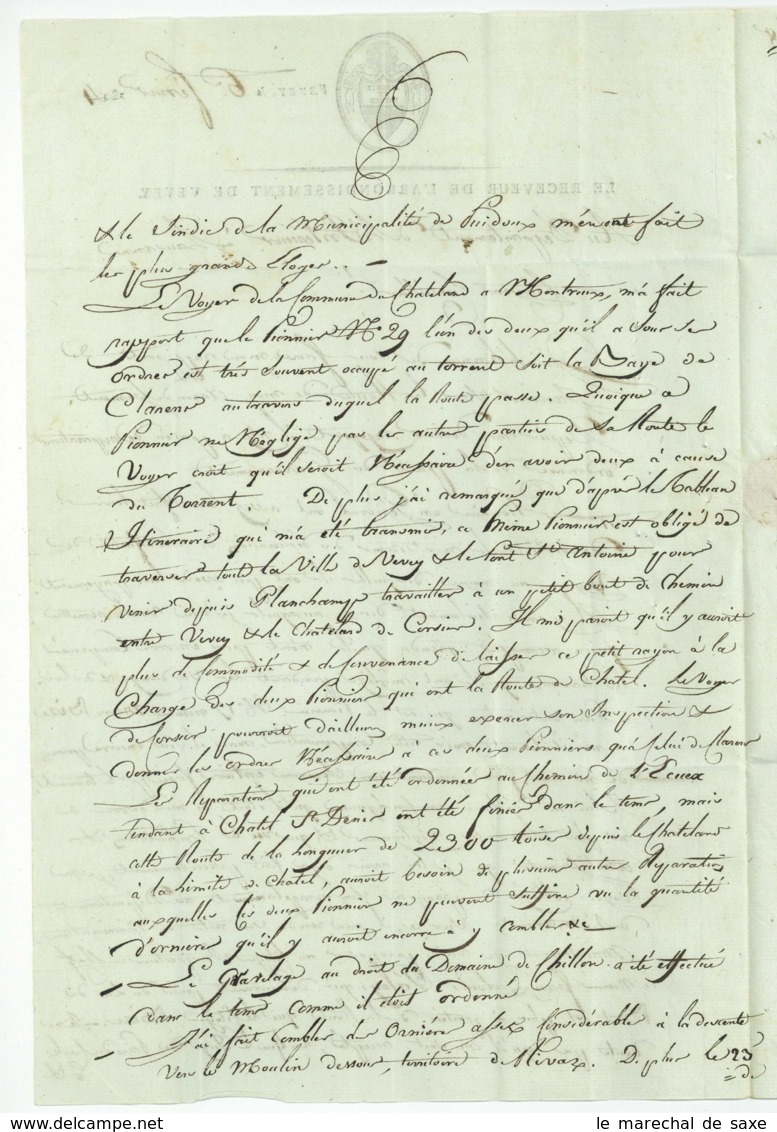 & le Sindic de la Municipalité de Puidoux m'en ont fait
les plus grands Eloges. —
Le Voyer de la Commune du Chatelard a Montreux, m'a fait
rapport que le Pionnier N.º 29 l'un des deux qu'il a sous ses
ordres est très souvent occupé au torrent soit la Baye de
Clarens autravers duquel la Route passe. Quoique ce
Pionnier ne Néglige pas les autres parties de sa Route le
Voyer croit qu'il seroit Nécessaire d'en avoir deux à cause
du Torrent. De plus j'ai remarqué que d'après le Tableau
Itinéraire qui m'a été transmis, ce Même Pionnier est obligé de
traverser toute la Ville de Vevey & le Pont St. Antoine pour
venir depuis Planchamp travailler à un petit bout de Chemin
entre Vevey & le Chatelard de Corsier. Il me paroit qu'il y auroit
plus de Commodité & de Convenance de laisser ce petit rayon à la
Charge des deux Pionniers qui ont la Route de Chatel. Le Voyer
de Corsier pourroit d'ailleurs mieux exercer son Inspection &
donner les ordres Nécessaires à ces deux Pionniers qu'à Celui de Clarens
Les Réparations qui ont été ordonnées au Chemin de l'Ecuex
tendant à Chatel St. Denis ont été finies dans le tems, mais
cette Route de la longueur de 2300 toises depuis le Chatelard
à la limite de Chatel, auroit besoin de plusieurs autres Réparations
auxquelles Ces deux Pionniers ne peuvent Suffire vu la quantité
d'ornières qu'il y auroit encore à y combler &c
Le Gravelage au droit du Domaine de Chillon a été effectué
dans le tems comme il étoit ordonné
J'ai fait Combler des Ornières assez Considérables à la descente
vers le Moulin dessous, territoire de Rivaz. De plus le 23
= de
le marechal de saxe